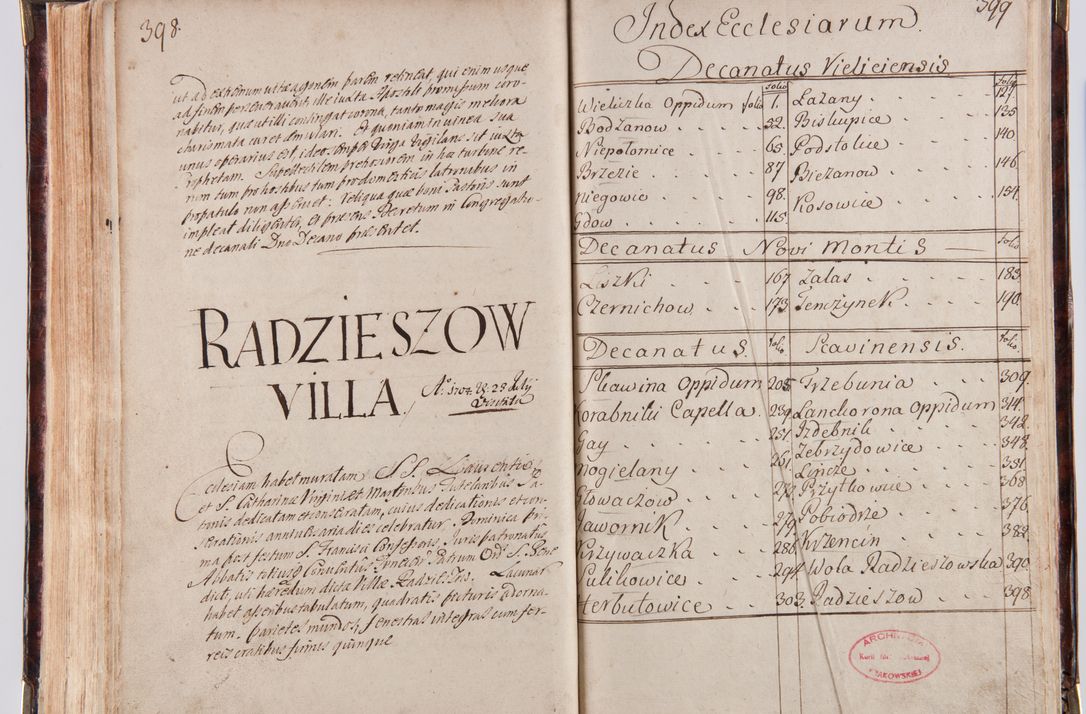 398.
ut ad extremum vitæ agonem parem retineat, qui enim usque
ad finem perseveraverit, ille iuxta Apostoli promissum coro-
nabitur, quæ ut illi contingat corona, tanto magis meliora
charismata curet æmulari. Et quoniam in vinea sua
unus operarius est, ideo semper Virga Vigilans sit iuxta
Prophetam. Supellectilem pretiosiorem in hoc turbine re-
rum tum pro hostibus tum pro domesticis latronibus in
propatulo non asservet: reliqua quæ boni Pastoris sunt
impleat diligenter, et præsens Decretum in Congregatio-
ne decanali Dno Decano præsentet.
RADZIESZOW
VILLA.
Ao 1704. D. 28 July
Visitata
Ecclesiam habet muratam SS. Laurentio
et S. Catharinæ Virginis et Martyribus Tutelaribus Pa-
tronis dedicatam et consecratam, cuius dedicationis et con-
secrationis anniversaria dies celebratur Dominica pri-
ma post festum S. Francisci Confessoris. Juris patronatus
Abbatis totiusque Conventus Tynecen Patrum Ord S. Bene
dicti, uti hæredum dictæ Villæ Radzieszow. Laquear
habet asseribus tabulatum, quadratis picturis adorna-
tum. Parietes mundos, fenestras integras cum fer-
reis cratibus firmis quinque
399
Index Ecclesiarum.
Decanatus Vieliciensis.
folio folio
Wieliczka Oppidum folio 1. Lazany. 127.
Bodzanow 32. Biskupice 135
Niepołomice 65 Podstolice 140
Brzezie 87 Biezanow 146
Niegowic 98. Kosowice 154
Gdow 115.
Decanatus Novi Montis folio
Liszki 167 Zalas 183
Czernichow 173 Tenczynek 190
Decanatus. folio Scavinensis. folio.
Skawina Oppidum 205 Trzebunia 309
Korabniki Capella. 239 Lanckorona Oppidum 314.
Gay 251. Izdebnik 342.
Mogielany 261. Zebrzydowice 348.
Głowaczow 272 Lencze 351
Jawornik 279 Przytkowice 368
Krzywaczka 286 Pobiodrze 376
Sulikowice 294 Krzencin 382
Herbutowice 303. Wola Radzieszowska 390
Radzieszow 398
ARCHIWUM
Kurii Metropolitalnej
KRAKOWSKIEJ